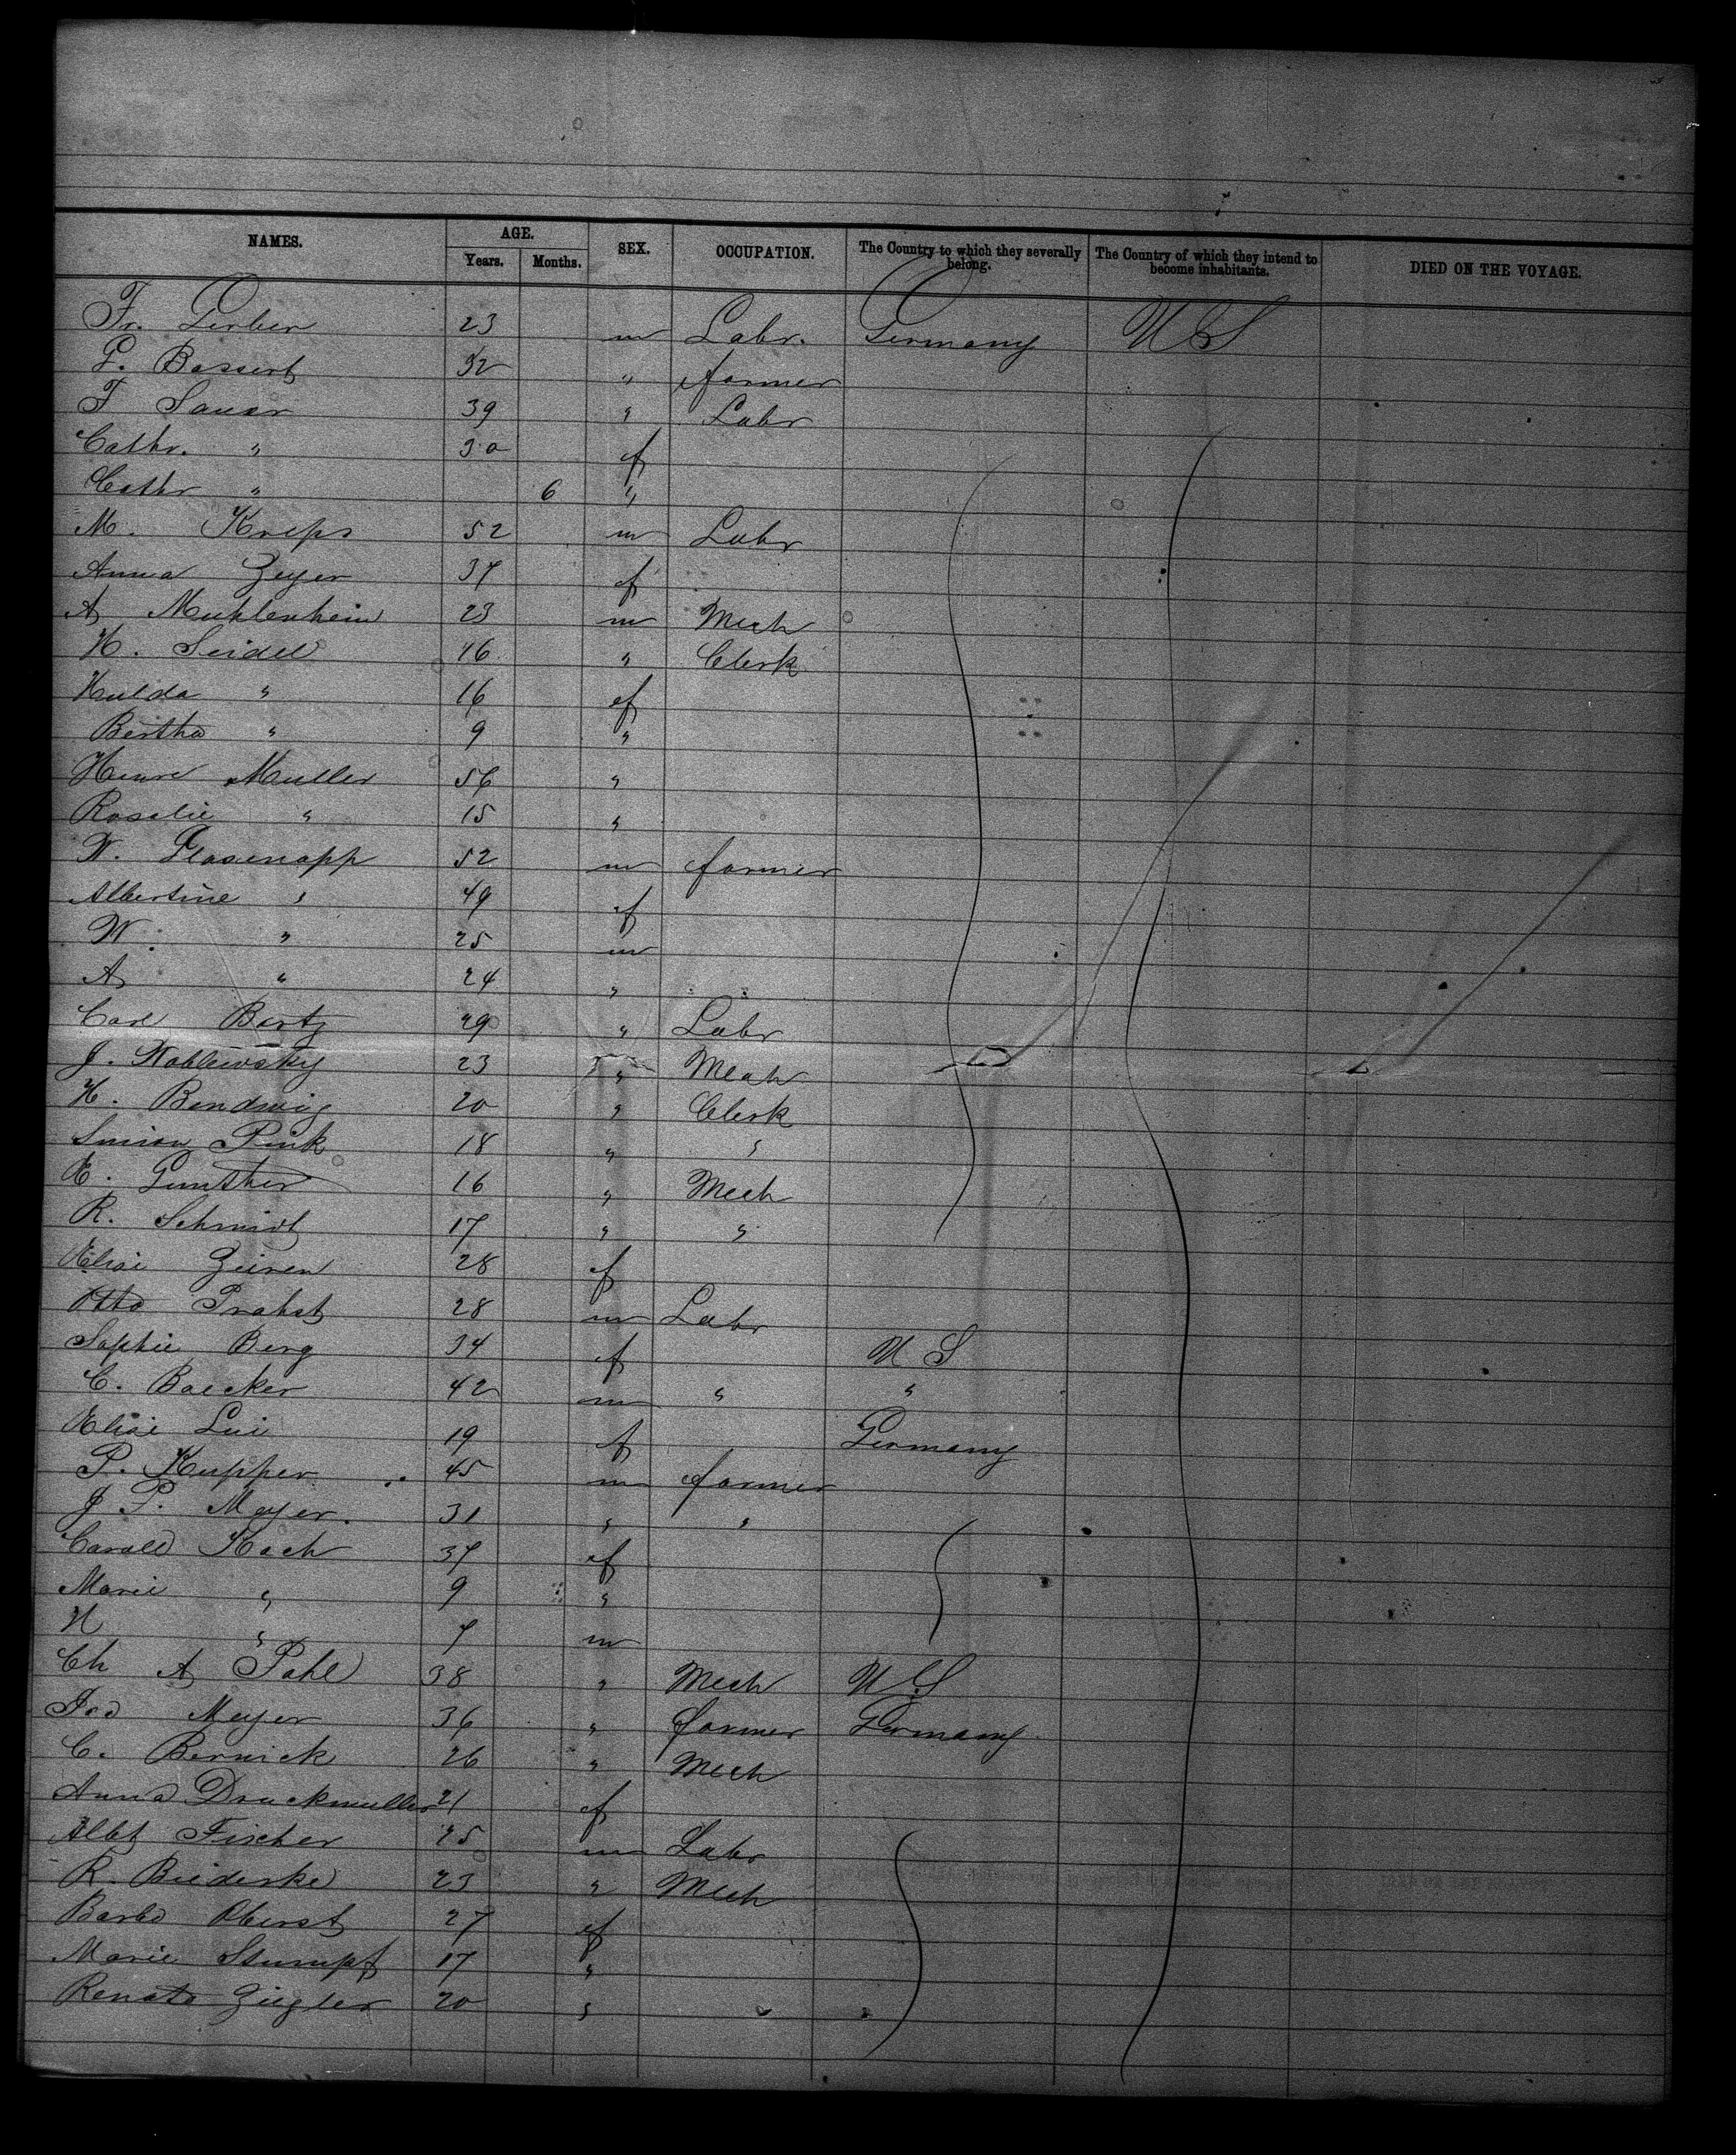 NAMES. AGE. Years. Months. SEX. OCCUPATION. The Country to which they severally belong. The Country of which they intend to become inhabitants. DIED ON THE VOYAGE.
Fr. Gerber 23 m Labr. Germany U S
G. Bossert 32 " farmer
F Sauer 39 " Labr
Cathr. " 30 f
Cathr " 6 "
M. Kreps 52 m Labr
Anna Geyer 37 f
A Muhlenhein 23 m Mech
H. Seidel 46 " Clerk
Hulda " 16 f
Bertha " 9 "
Henre Muller 56 "
Rosalie " 15 "
W. Glasenapp 52 m farmer
Albertine " 49 f
W. " 25 m
A " 24 "
Carl Bartz 29 " Labr
J. Noblewsky 23 " Mech
H. Bendwig 20 " Clerk
Simon Pink 18 " "
E. Gunther 16 " Mech
R. Schmidt 17 " "
Elise 28 f
Otto Probst 28 m Labr
Sophie Berg 34 f U S
C. Baecker 42 m " "
Elise Lui 19 f Germany
P. Kupper 45 m farmer
J P. Meyer. 31 " "
Koch 37 f
Marie " 9 "
H " 7 m
Ch A Pahl 38 " Mech U.S
Meyer 36 " farmer Germany
C. Bernick 26 " Mech
Anna Druckmuller 21 f
Albt Fischer 25 m Labr
R. Biederke 23 " Mech
Barba Oberst 27 f
Marie Stumpf 17 "
Renate Ziegler 20 "